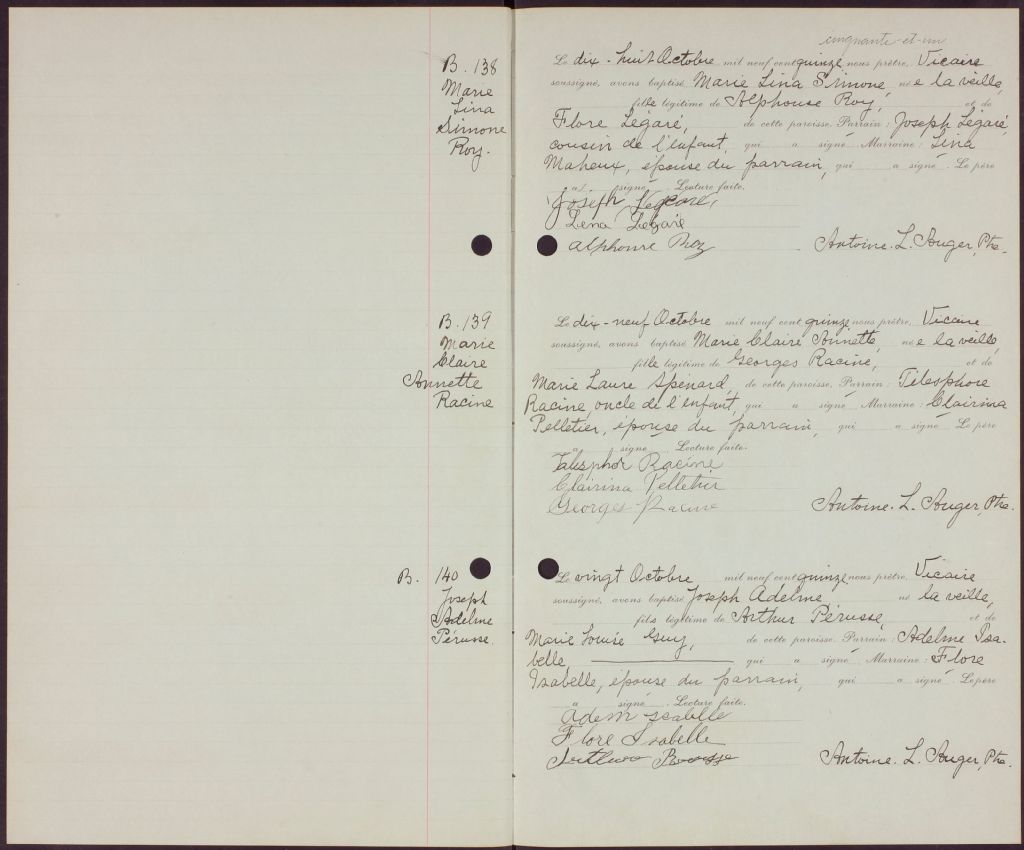 cinquante-et-un
B. 138
Marie
Lina
Simone
Roy.
Le dix-huit Octobre mil neuf cent quinze nous prêtre, Vicaire
soussigné, avons baptisé Marie Lina Simone, née la veille,
fille légitime de Alphonse Roy, et de
Flore Légaré, de cette paroisse. Parrain: Joseph Légaré,
cousin de l'enfant, qui a signé Marraine: Lina
Maheux, épouse du parrain, qui a signé. Le père
a signé. Lecture faite.
Joseph Legaré,
Lena Legaré
Alphonse Roy
Antoine. L. Auger, Ptre.
B. 139
Marie
Claire
Annette
Racine
Le dix-neuf Octobre mil neuf cent quinze nous prêtre, Vicaire
soussigné, avons baptisé Marie Claire Annette, née la veille,
fille légitime de Georges Racine, et de
Marie Laure Spénard, de cette paroisse. Parrain: Télesphore
Racine, oncle de l'enfant, qui a signé Marraine: Clairina
Pelletier, épouse du parrain, qui a signé Le père
a signé. Lecture faite.
Talesphor Racine
Clairina Pelletier
Georges Racine
Antoine. L. Auger, Ptre.
B. 140
Joseph
Adelme
Pérusse.
Le vingt Octobre mil neuf cent quinze nous prêtre, Vicaire
soussigné, avons baptisé Joseph Adelme né la veille,
fils légitime de Arthur Pérusse, et de
Marie Louise Guy, de cette paroisse. Parrain: Adelme Isa-
belle, qui a signé Marraine: Flore
Isabelle, épouse du parrain, qui a signé. Le père
a signé. Lecture faite.
Adem
Flore Isabelle
Antoine. L. Auger, Ptre.